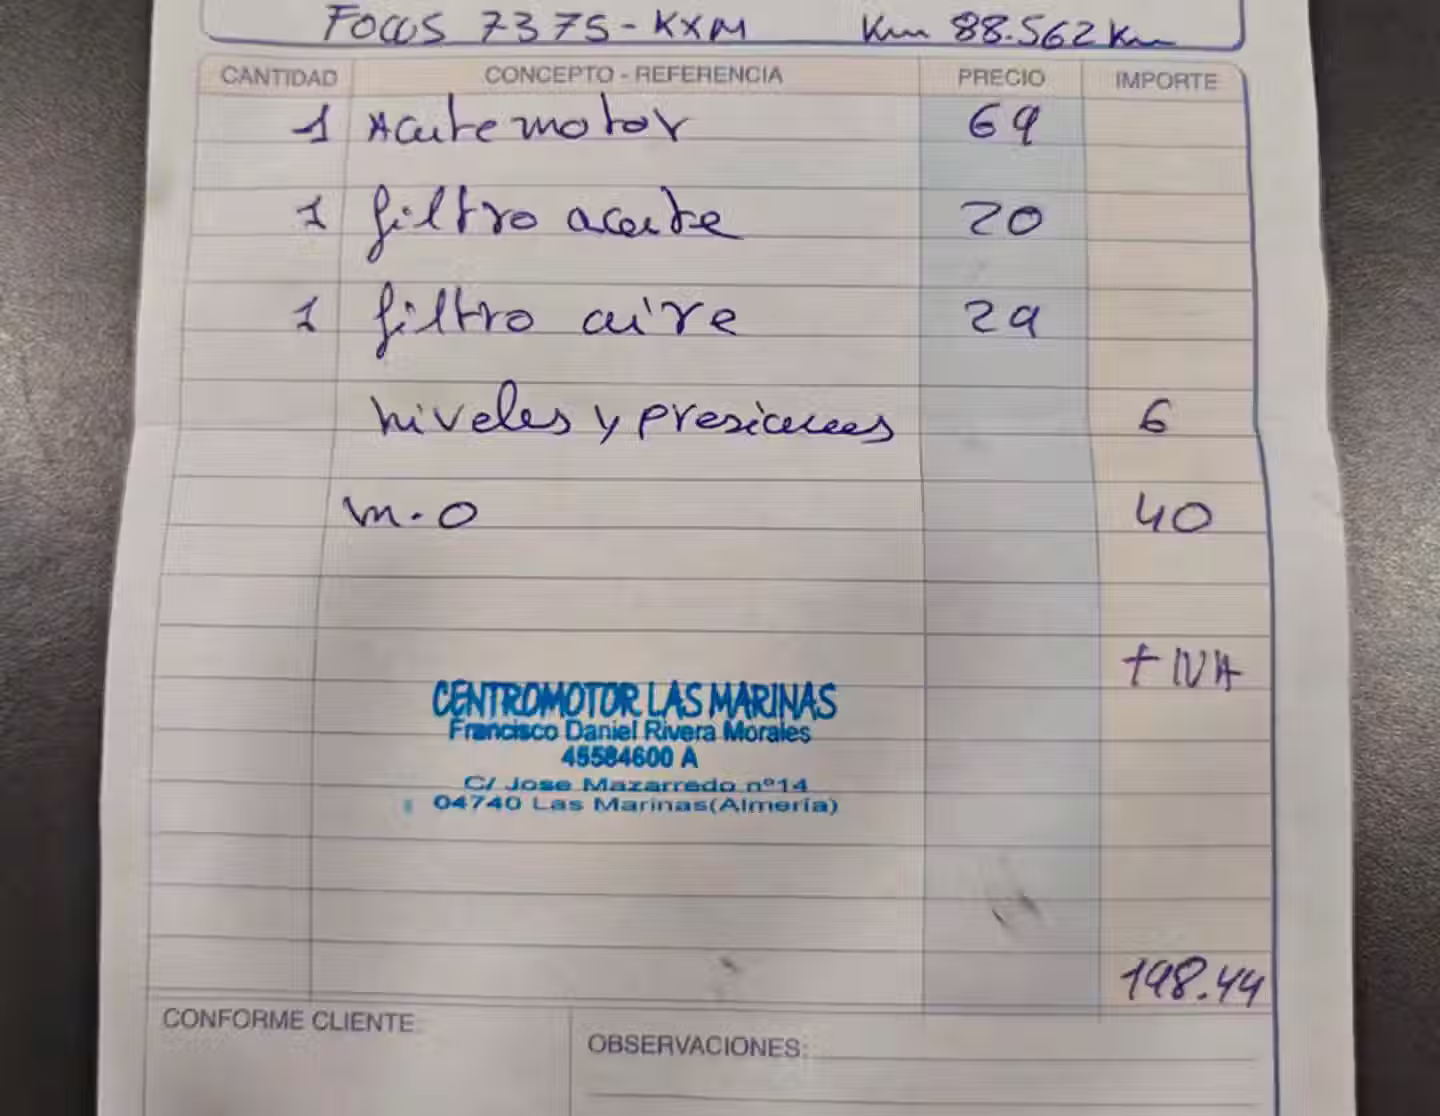 FOCUS 7375-KXM Km 88.562 Km
CANTIDAD CONCEPTO - REFERENCIA PRECIO IMPORTE
1 Aceite motor 69
1 filtro aceite 20
1 filtro aire 29
niveles y presiones 6
m.o 40
+ IVA
CENTROMOTOR LAS MARINAS
Francisco Daniel Rivera Morales
45584600 A
C/ Jose Mazarredo nº14
04740 Las Marinas(Almería)
198.44
CONFORME CLIENTE:
OBSERVACIONES: